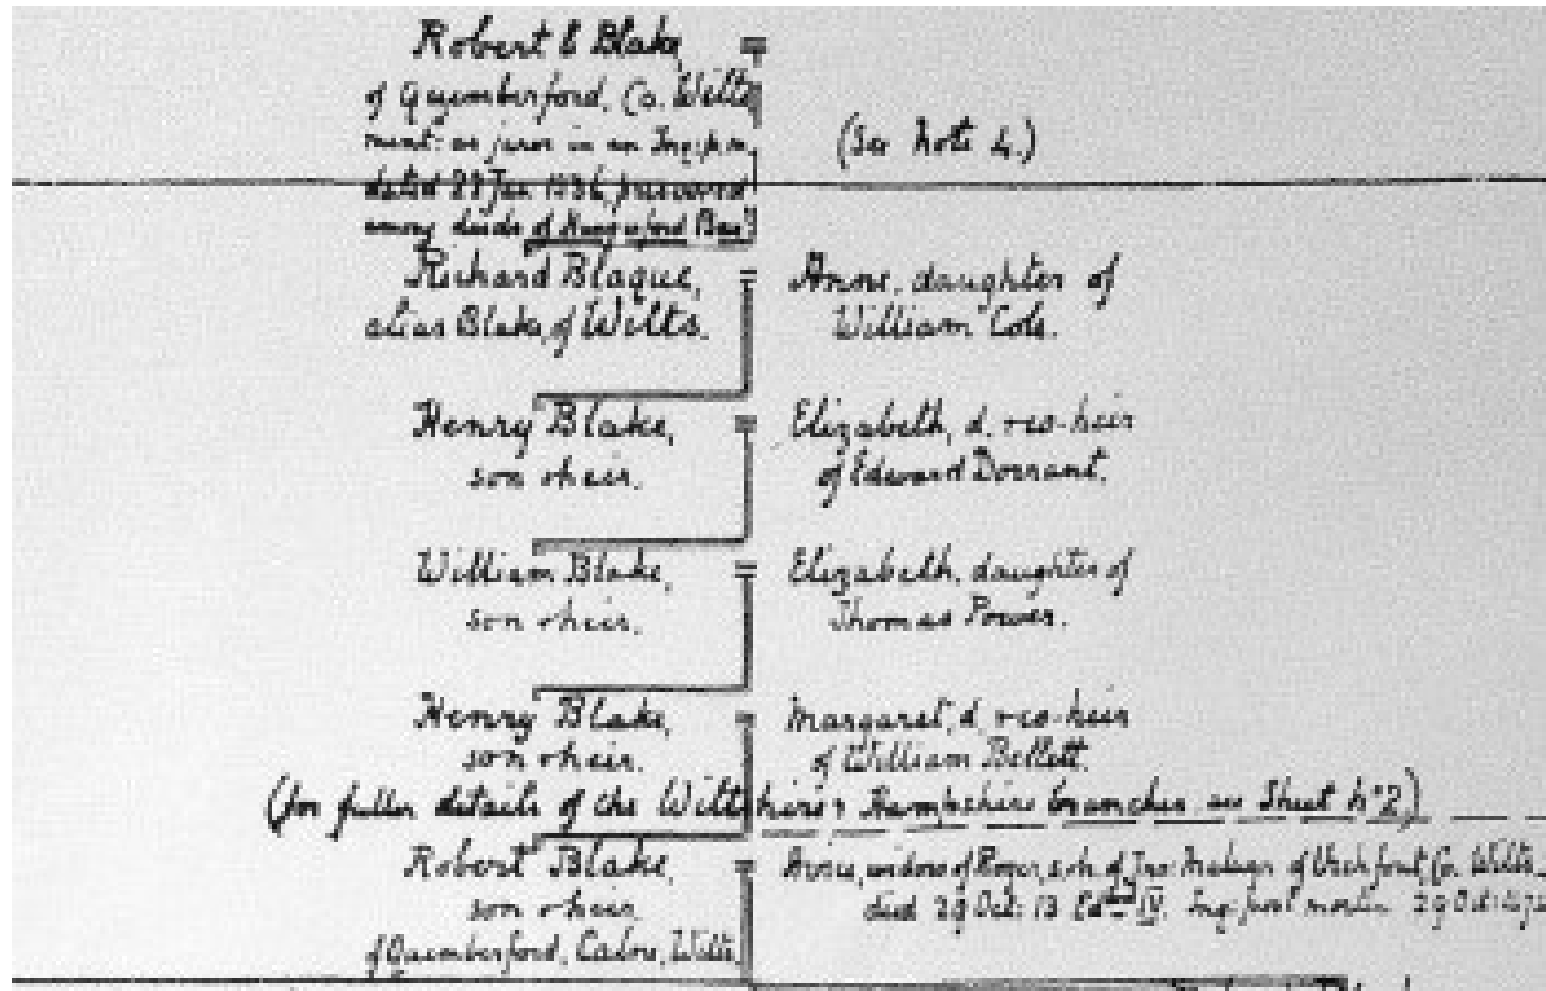 Robert Blake,
of Quemberford, Co. Wilts
ment: as juror in an
dated Jan preserved
among deeds of
(See Note 4.)
Richard Blague,
alias Blake, of Wilts.
Anne, daughter of
William Cole.
Henry Blake,
son & heir.
Elizabeth, d. & co-heir
of Edward Dorrant.
William Blake,
son & heir.
Elizabeth, daughter of
Thomas Power.
Henry Blake,
son & heir.
Margaret, d. & co-heir
of William Bellett.
(for fuller details of the Wiltshire & Hampshire branches see Sheet No 2)
Robert Blake,
son & heir
of Quemberford, Calne, Wilts.
Avice, widow of Roger, s. & h. of Jno: of Co. Wilts.
died 29 Oct: 12 Edwd IV. Inq: post mortem 29 Oct: 1472